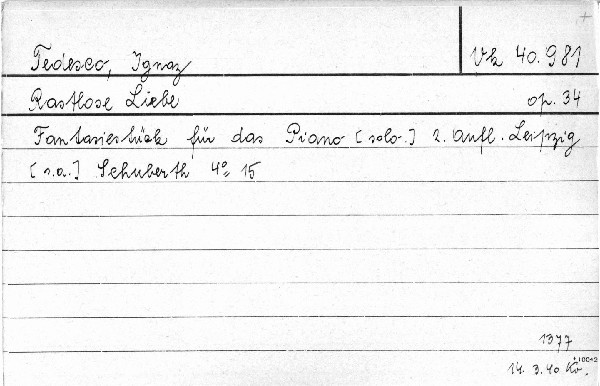 +
Tedesco, Ignaz Vk 40.981
Rastlose Liebe op. 34
Fantasiestück für das Piano [solo.] 2. Aufl. Leipzig
[s.a.] Schuberth 4° 15
1377
14. 3. 40 Kö.